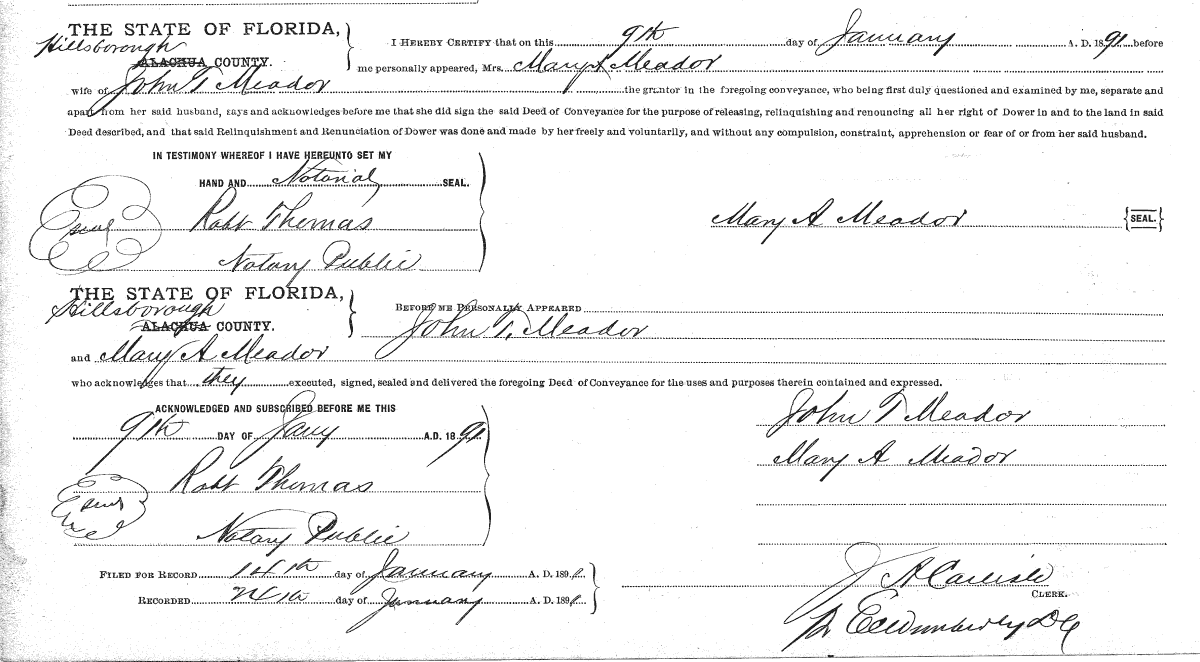 THE STATE OF FLORIDA,
Hillsborough
ALACHUA COUNTY.
I HEREBY CERTIFY that on this 9th day of January A. D. 1891 before
me personally appeared, Mrs. Mary A Meador
wife of John T Meador the grantor in the foregoing conveyance, who being first duly questioned and examined by me, separate and
apart from her said husband, says and acknowledges before me that she did sign the said Deed of Conveyance for the purpose of releasing, relinquishing and renouncing all her right of Dower in and to the land in said
Deed described, and that said Relinquishment and Renunciation of Dower was done and made by her freely and voluntarily, and without any compulsion, constraint, apprehension or fear of or from her said husband.
IN TESTIMONY WHEREOF I HAVE HEREUNTO SET MY
HAND AND Notorial SEAL.
Seal
Robt Thomas
Notary Public
Mary A Meador {SEAL.}
THE STATE OF FLORIDA,
Hillsborough
ALACHUA COUNTY.
BEFORE ME PERSONALLY APPEARED
John T. Meador
and Mary A Meador
who acknowledges that they executed, signed, sealed and delivered the foregoing Deed of Conveyance for the uses and purposes therein contained and expressed.
ACKNOWLEDGED AND SUBSCRIBED BEFORE ME THIS
9th DAY OF Jany A.D. 1891
Robt Thomas
Seal
Notary Public
John T Meador
Mary A Meador
FILED FOR RECORD 14th day of January A. D. 1891
RECORDED 24th day of January A. D. 1891
J A Carlisle
CLERK.
DC